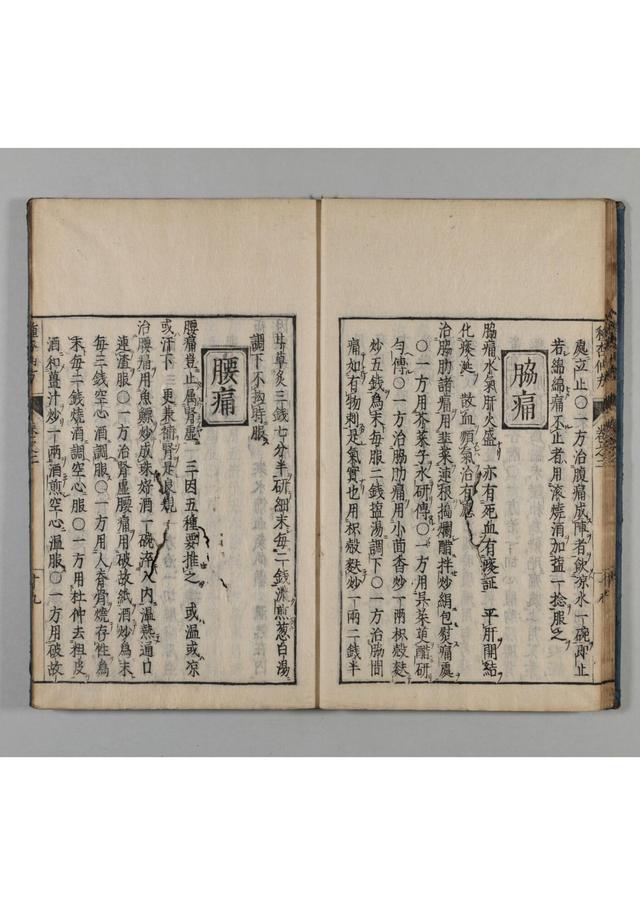 處立止○一方治腹痛成陣者飲凉水一碗即止
若綿綿痛不止者用滾燒酒加鹽一捻服之
脇痛
脇痛水氣肝火盛　亦有死血有痰証　平肝開結
化痰涎　散血順氣治有應
治脇肋諸痛用韭菜連根搗爛醋拌炒絹包熨痛處
○一方用芥菜子水研傳○一方用吳茱萸醋研
勻傅○一方治脇肋痛用小茴香炒一兩枳殼麩
炒五錢爲末每服二錢鹽湯調下○一方治脇間
痛如有物刺是氣實也用枳殼麩炒一兩二錢半
甘草炙三錢七分半研細末每二錢濃煎葱白湯
調下不拘時服
腰痛
腰痛豈止属腎虛　三因五種要推之　或温或凉
或汗下　更兼補腎是良規
治腰痛用魚鰾炒成珠好酒一碗淬入内温熱通口
連渣服○一方治腎虛腰痛用破故紙酒炒爲末
每三錢空心酒調服○一方用人脊骨燒存性爲
末每二錢燒酒調空心服○一方用杜仲去粗皮
酒和薑汁炒一兩酒煎空心温服○一方用破故